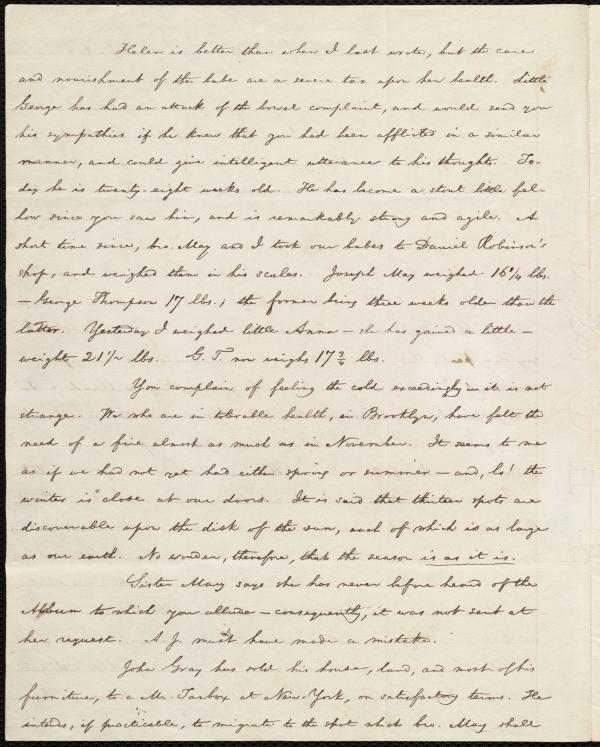 Helen is better than when I last wrote, but the care
and nourishment of the babe are a severe tax upon her health. Little
George has had an attack of the bowel complaint, and would send you
his sympathies if he knew that you had been afflicted in a similar
manner, and could give intelligent utterance to his thoughts. To-
day he is twenty-eight weeks old. He has become a stout little fel-
low since you saw him, and is remarkably strong and agile. A
short time since, bro. May and I took our babes to Daniel Robinson's
shop, and weighed them in his scales. Joseph May weighed 16 1/4 lbs.
— George Thompson 17 lbs.; the former being three weeks older than the
latter. Yesterday I weighed little Anna — she has gained a little —
weight 21 1/2 lbs. G. T. now weighs 17 3/4 lbs.
You complain of feeling the cold exceedingly — it is not
strange. We who are in tolerable health, in Brooklyn, have felt the
need of a fire almost as much as in November. It seems to me
as if we had not yet had either spring or summer — and, lo! the
winter is close at our doors. It is said that thirteen spots are
discoverable upon the disk of the sun, each of which is as large
as our earth. No wonder, therefore, that the season is as it is.
Sister Mary says she has never before heard of the
Album to which you allude — consequently, it was not sent at
her request. A. J. must have made a mistake.
John Gray has sold his house, land, and most of his
furniture, to a Mr. Tarbox at New-York, on satisfactory terms. He
intends, if practicable, to migrate to the spot which bro. May shall